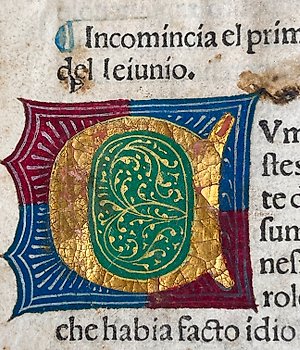 ¶ Incomincia el prim
del Ieiunio.
CVm
stes
te c
sum
nes
role
che habia facto idio